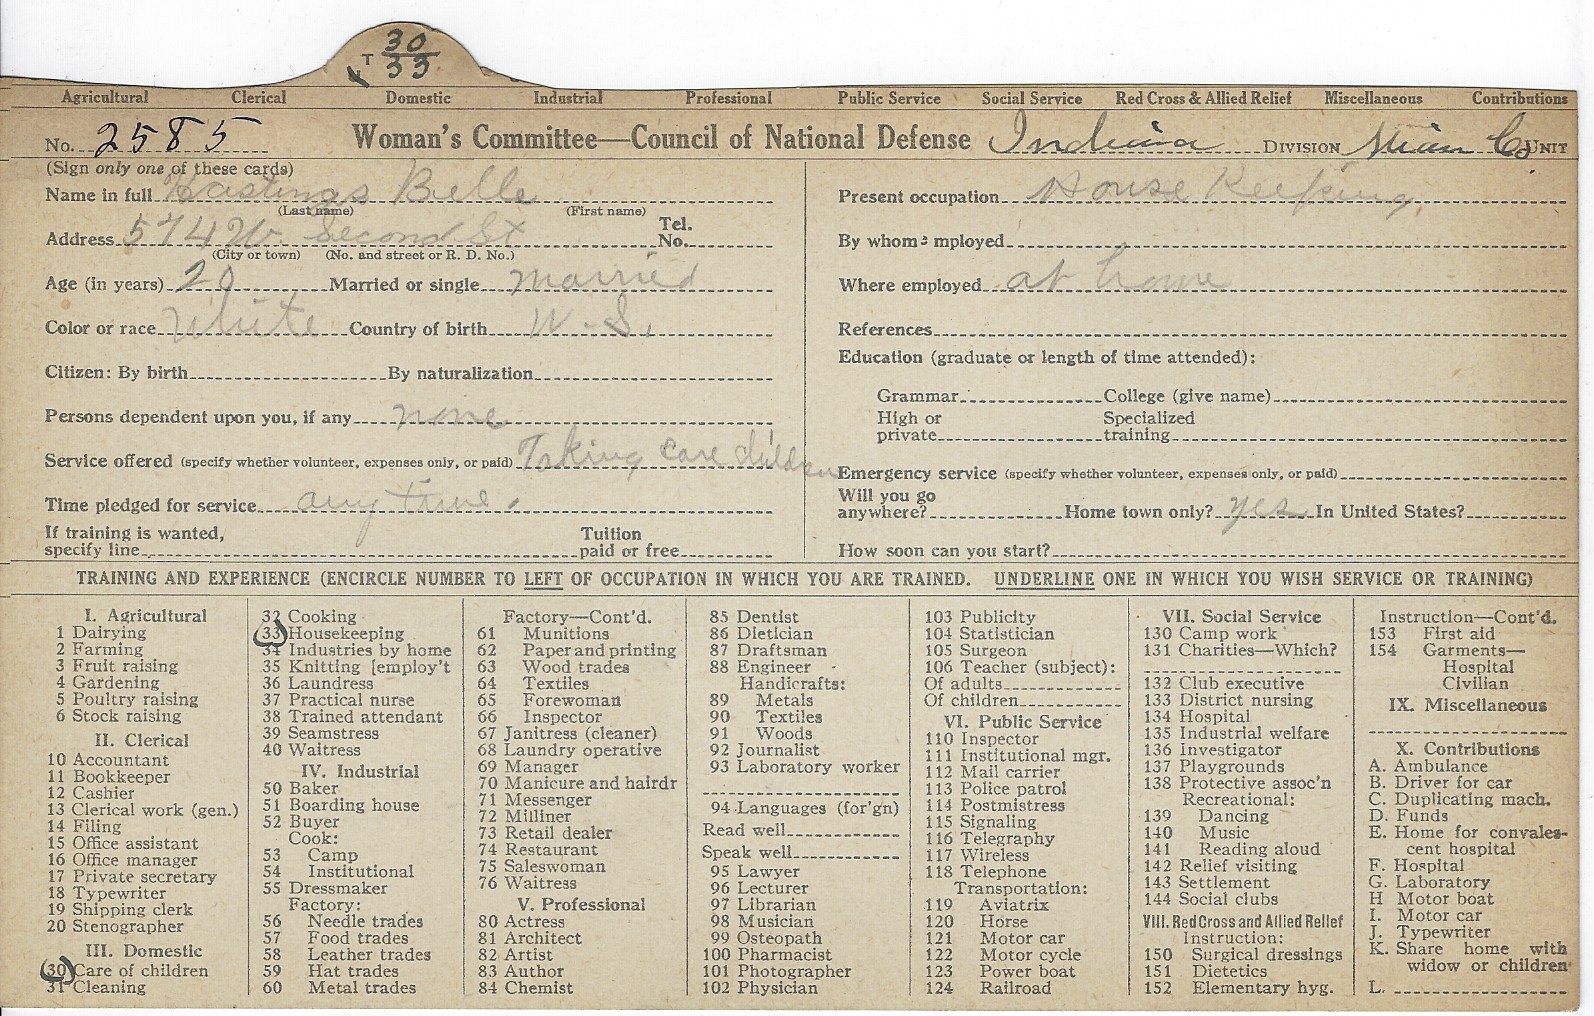 T 30
33
Agricultural Clerical Domestic Industrial Professional Public Service Social Service Red Cross & Allied Relief Miscellaneous Contributions
No. 2585 Woman's Committee—Council of National Defense Indiana DIVISION Miami Co. UNIT
(Sign only one of these cards)
Name in full Hastings Belle
(Last name) (First name)
Address 574 W. Second St Tel. No.
(City or town) (No. and street or R. D. No.)
Age (in years) 20 Married or single married
Color or race White Country of birth U.S.
Citizen: By birth By naturalization
Persons dependent upon you, if any none
Service offered (specify whether volunteer, expenses only, or paid) Taking care children
Time pledged for service any time.
If training is wanted, specify line Tuition paid or free
Present occupation House Keeping
By whom employed
Where employed at home
References
Education (graduate or length of time attended):
Grammar College (give name)
High or private Specialized training
Emergency service (specify whether volunteer, expenses only, or paid)
Will you go anywhere? Home town only? yes In United States?
How soon can you start?
TRAINING AND EXPERIENCE (ENCIRCLE NUMBER TO LEFT OF OCCUPATION IN WHICH YOU ARE TRAINED. UNDERLINE ONE IN WHICH YOU WISH SERVICE OR TRAINING)
I. Agricultural
1 Dairying
2 Farming
3 Fruit raising
4 Gardening
5 Poultry raising
6 Stock raising
II. Clerical
10 Accountant
11 Bookkeeper
12 Cashier
13 Clerical work (gen.)
14 Filing
15 Office assistant
16 Office manager
17 Private secretary
18 Typewriter
19 Shipping clerk
20 Stenographer
III. Domestic
30 Care of children
31 Cleaning
32 Cooking
33 Housekeeping
34 Industries by home
35 Knitting [employ't
36 Laundress
37 Practical nurse
38 Trained attendant
39 Seamstress
40 Waitress
IV. Industrial
50 Baker
51 Boarding house
52 Buyer
Cook:
53 Camp
54 Institutional
55 Dressmaker
Factory:
56 Needle trades
57 Food trades
58 Leather trades
59 Hat trades
60 Metal trades
Factory—Cont'd.
61 Munitions
62 Paper and printing
63 Wood trades
64 Textiles
65 Forewoman
66 Inspector
67 Janitress (cleaner)
68 Laundry operative
69 Manager
70 Manicure and hairdr
71 Messenger
72 Milliner
73 Retail dealer
74 Restaurant
75 Saleswoman
76 Waitress
V. Professional
80 Actress
81 Architect
82 Artist
83 Author
84 Chemist
85 Dentist
86 Dietician
87 Draftsman
88 Engineer
Handicrafts:
89 Metals
90 Textiles
91 Woods
92 Journalist
93 Laboratory worker
94 Languages (for'gn)
Read well
Speak well
95 Lawyer
96 Lecturer
97 Librarian
98 Musician
99 Osteopath
100 Pharmacist
101 Photographer
102 Physician
103 Publicity
104 Statistician
105 Surgeon
106 Teacher (subject):
Of adults
Of children
VI. Public Service
110 Inspector
111 Institutional mgr.
112 Mail carrier
113 Police patrol
114 Postmistress
115 Signaling
116 Telegraphy
117 Wireless
118 Telephone
Transportation:
119 Aviatrix
120 Horse
121 Motor car
122 Motor cycle
123 Power boat
124 Railroad
VII. Social Service
130 Camp work
131 Charities—Which?
132 Club executive
133 District nursing
134 Hospital
135 Industrial welfare
136 Investigator
137 Playgrounds
138 Protective assoc'n
Recreational:
139 Dancing
140 Music
141 Reading aloud
142 Relief visiting
143 Settlement
144 Social clubs
VIII. Red Cross and Allied Relief
Instruction:
150 Surgical dressings
151 Dietetics
152 Elementary hyg.
Instruction—Cont'd.
153 First aid
154 Garments—
Hospital
Civilian
IX. Miscellaneous
X. Contributions
A. Ambulance
B. Driver for car
C. Duplicating mach.
D. Funds
E. Home for convales-
cent hospital
F. Hospital
G. Laboratory
H Motor boat
I. Motor car
J. Typewriter
K. Share home with
widow or children
L.